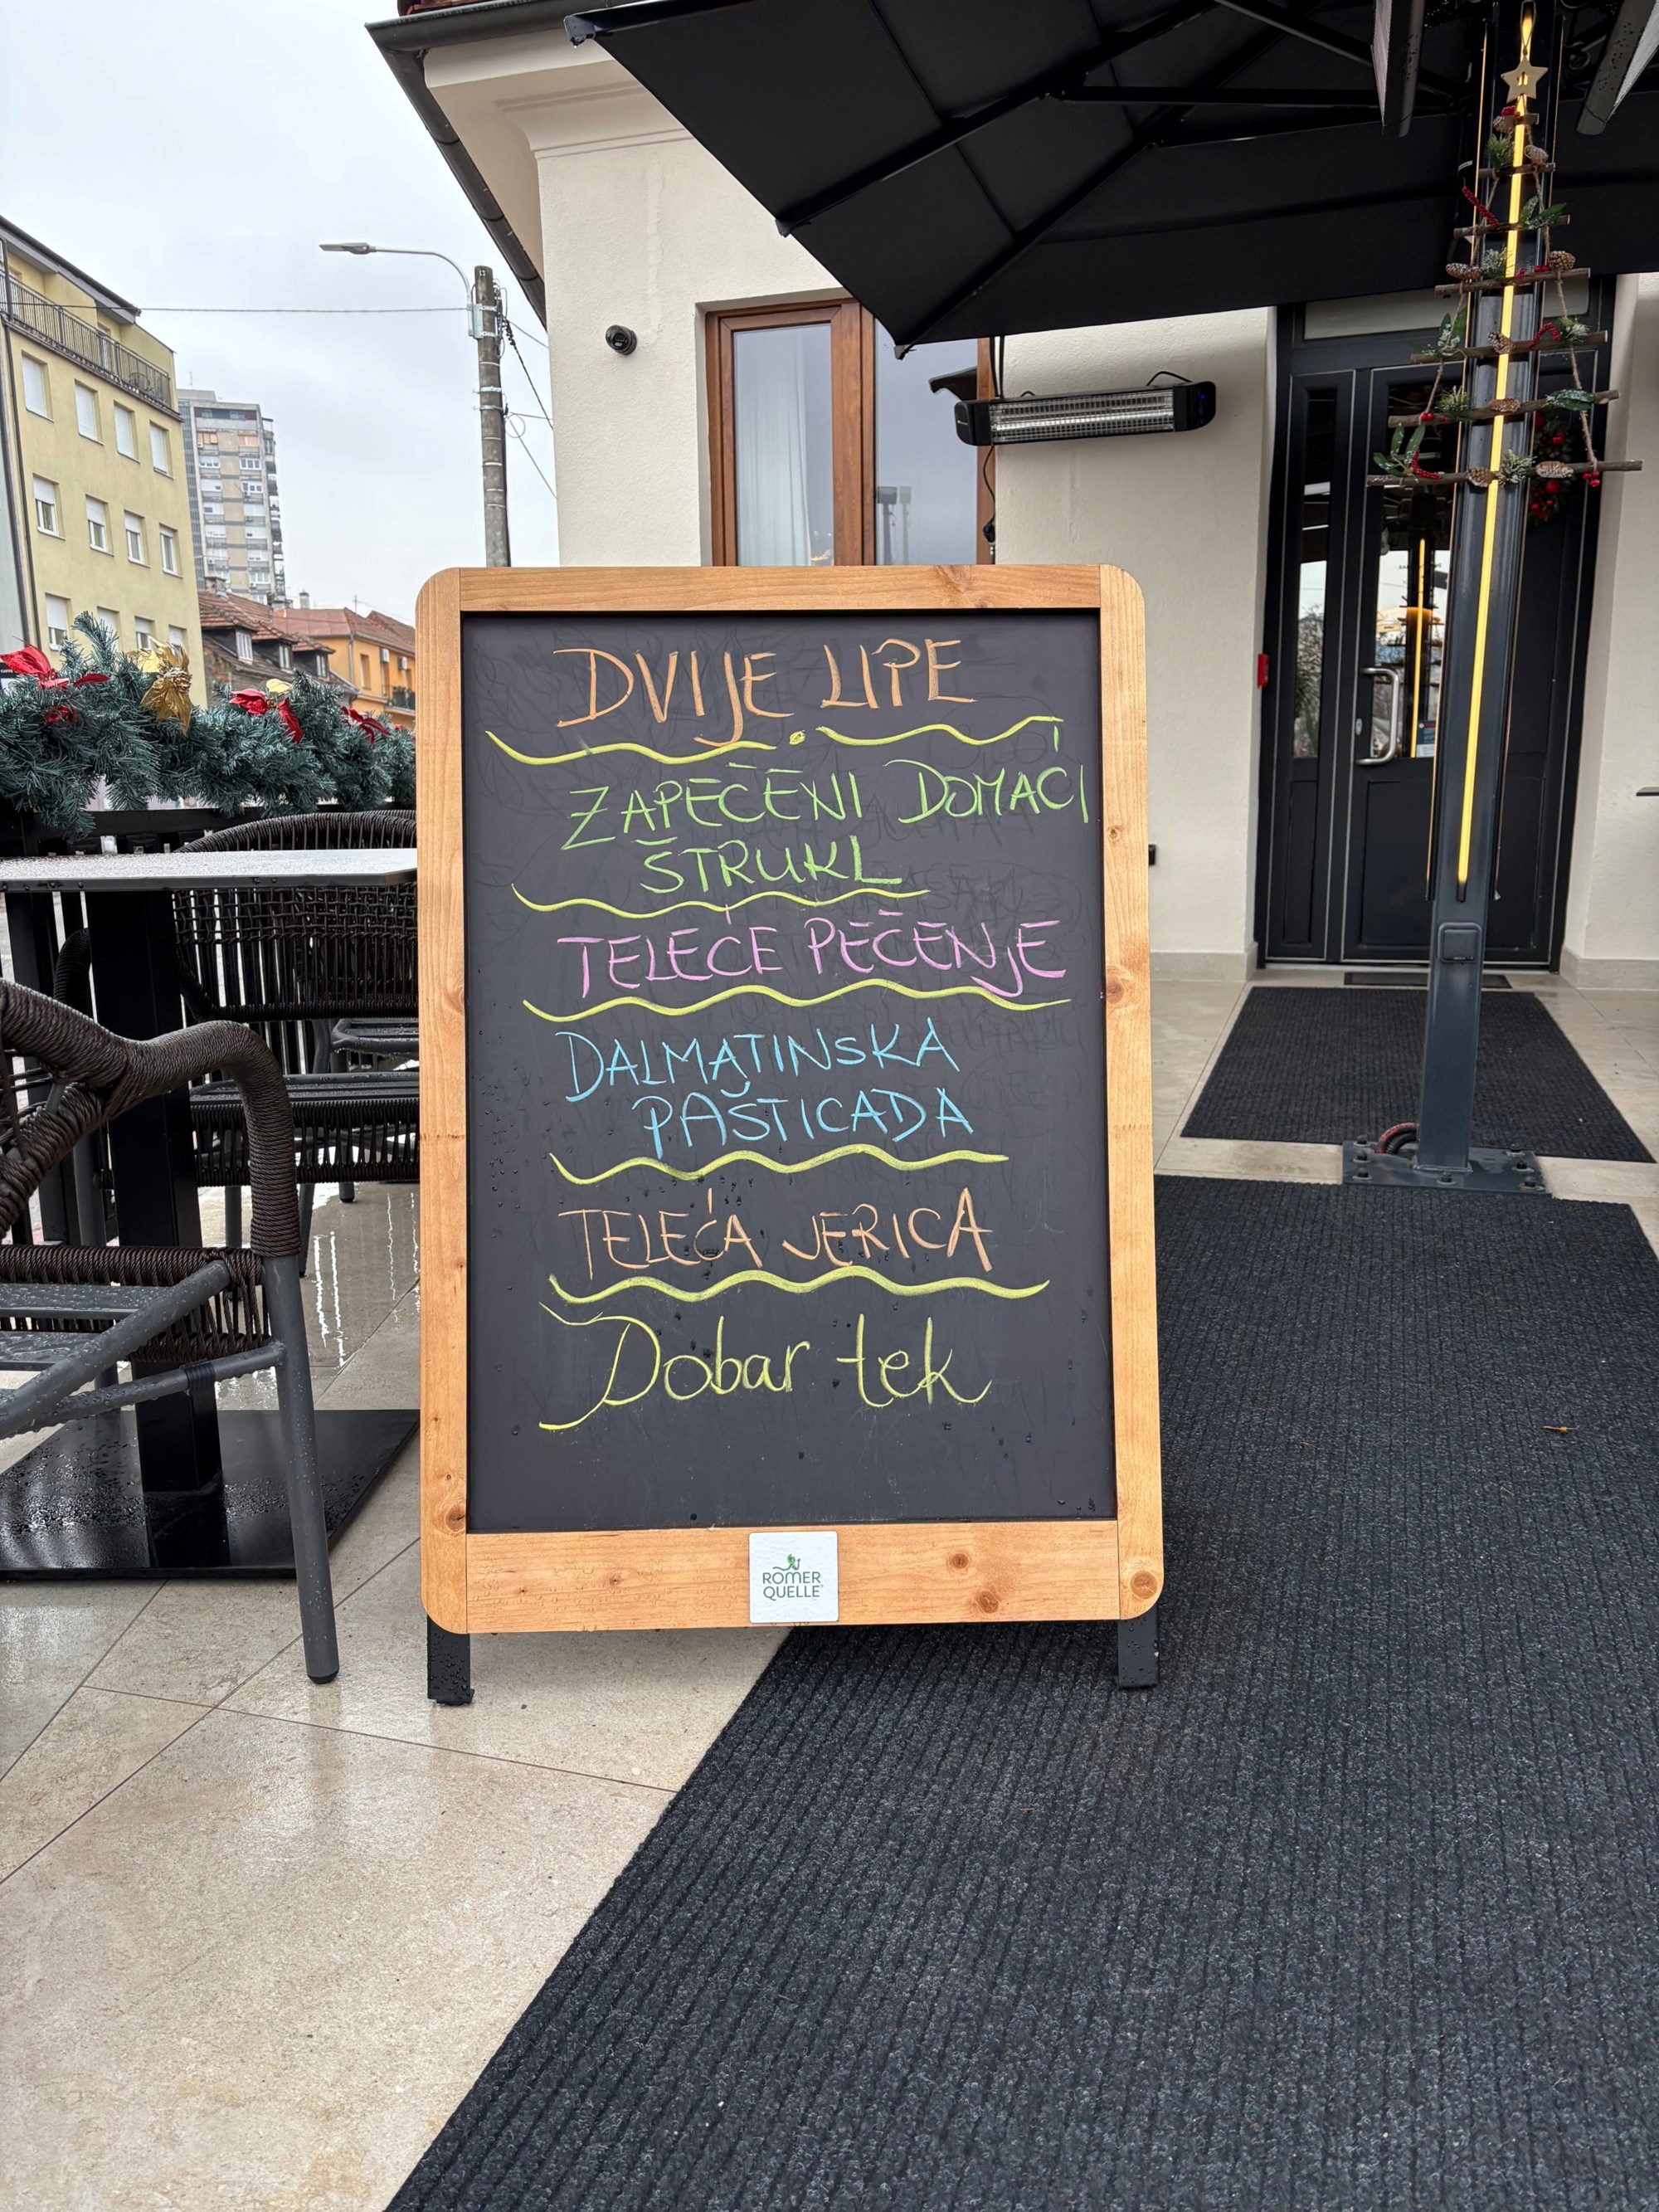 DVIJE LIPE
ZAPEČENI DOMAĆI
ŠTRUKL
TELEĆE PEČENJE
DALMATINSKA
PAŠTICADA
TELEĆA JERICA
Dobar tek
RÖMER
QUELLE